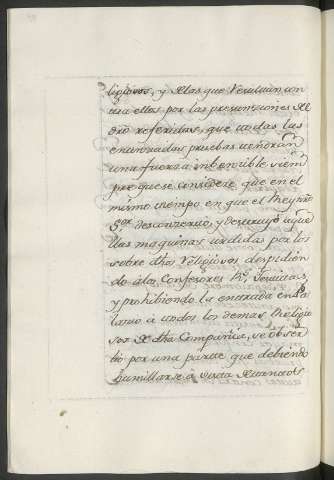 ligiosos, y de las que resultan con
tra ellos por las presunciones de
dro referidas, que todas las
enunziadas pruebas tendran
una fuerza inbencible siem
pre que se considere que en el
mismo tiempo en que el Rey nro
S.or desconzertó, y destruyó aque
llas maquinas urdidas por los
sobre dhos Religiosos despidien
do a los Confesores Jesuitas,
y prohibiendo la entrada en Pa
lacio à todos los demas Religio
sos de dha Compañia, se obser
bó por una parte que debiendo
humillarse à vista de tantos